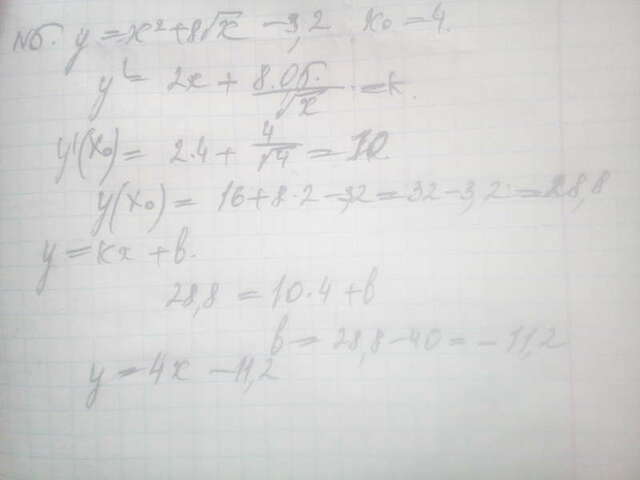 №5. y = x² + 8√x − 3,2 x₀ = 4.
y' = 2x + 8·0,5/√x = k.
y'(x₀) = 2·4 + 4/√4 = 10.
y(x₀) = 16 + 8·2 − 3,2 = 32 − 3,2 = 28,8
y = kx + b.
28,8 = 10·4 + b
b = 28,8 − 40 = −11,2
y = 4x − 11,2